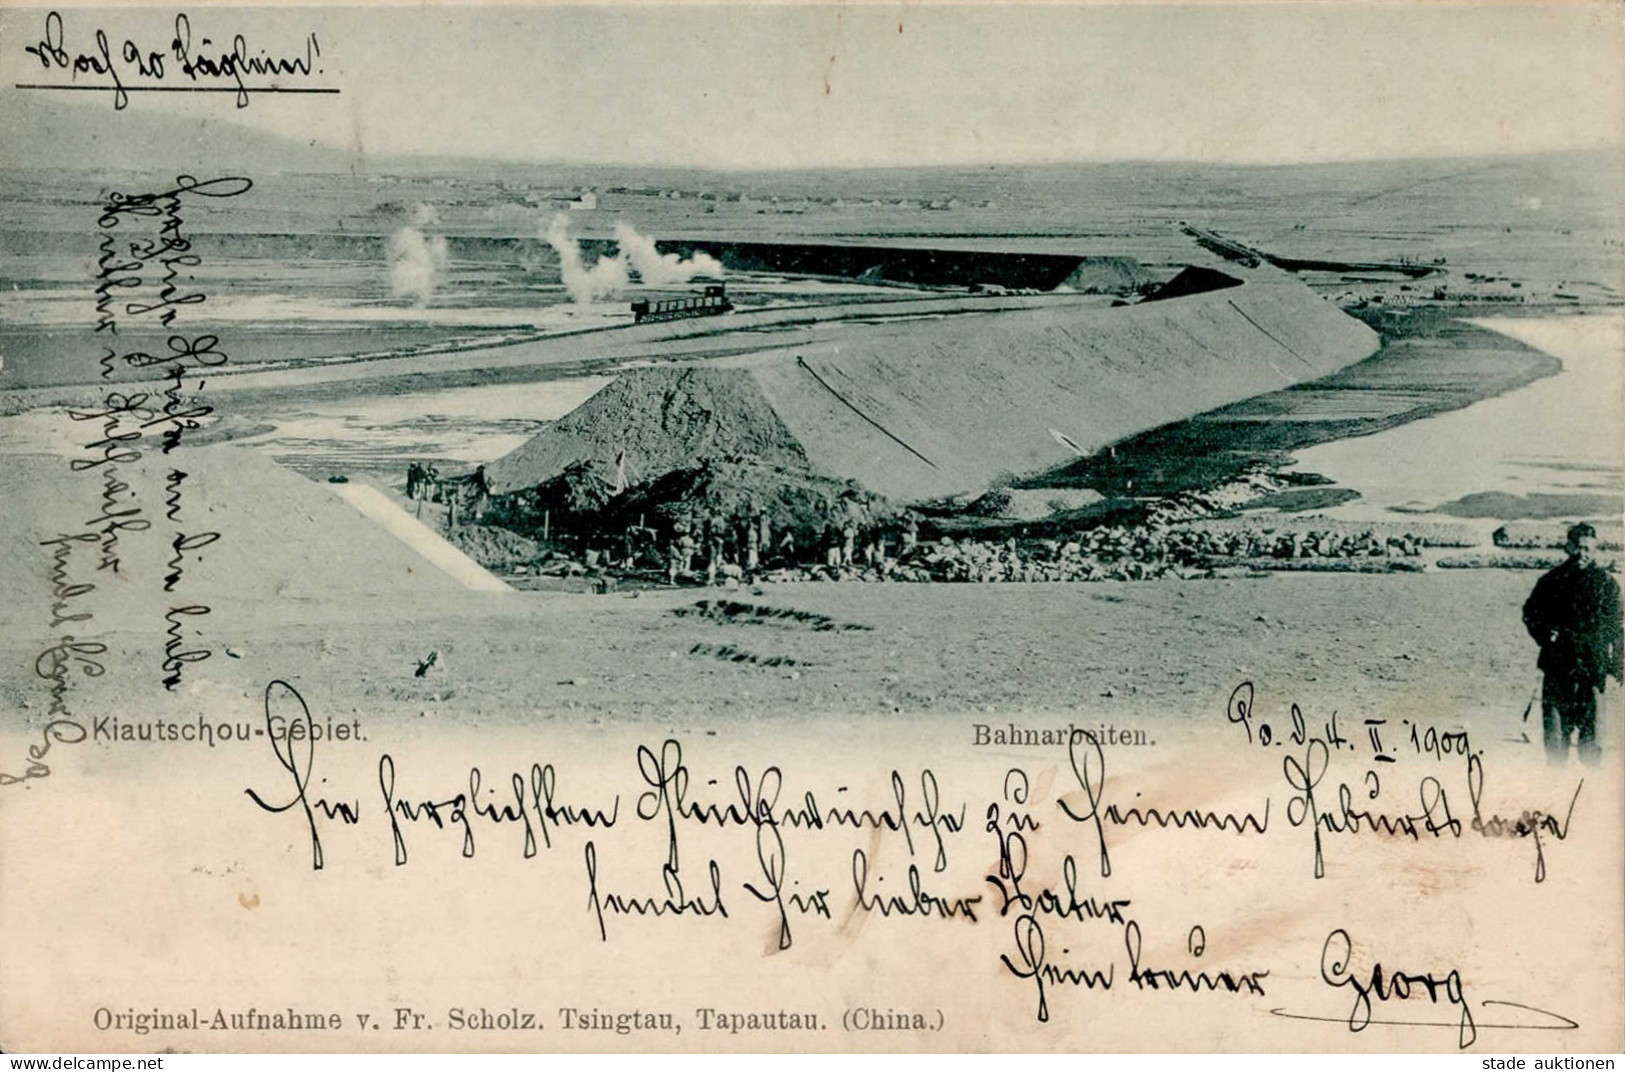 Noch 20 Täglein!
Herzliche Grüße an die liebe
Mutter u. Geschwister
sendet Euer Georg.
Kiautschou-Gebiet.
Bahnarbeiten.
Po. d. 4. II. 1909.
Die herzlichsten Glückwünsche zu Deinem Geburtstage
sendet Dir lieber Vater
Dein treuer Georg
Original-Aufnahme v. Fr. Scholz. Tsingtau, Tapautau. (China.)
www.delcampe.net
stade auktionen